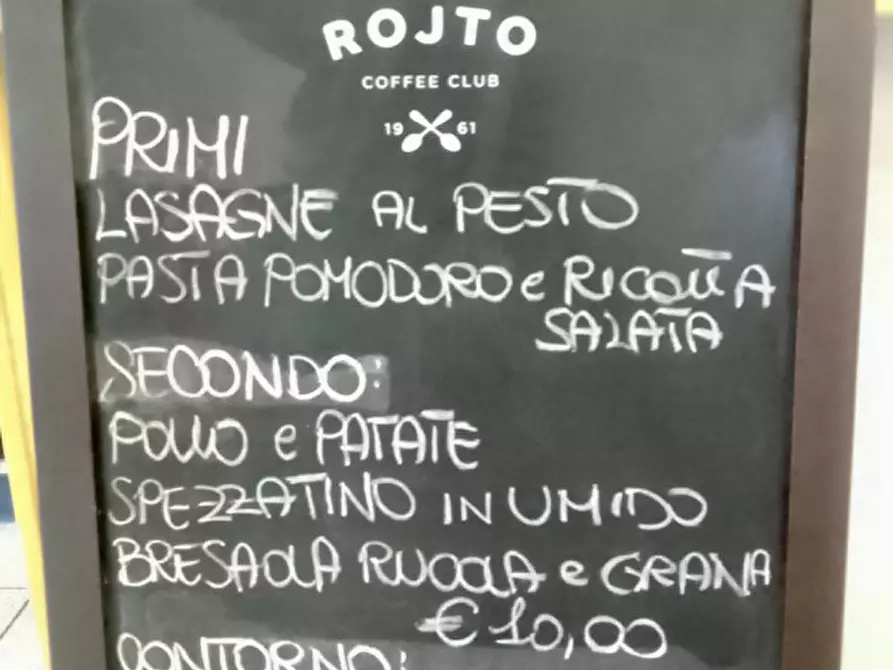 ROJTO
COFFEE CLUB
19 61
PRIMI
LASAGNE AL PESTO
PASTA POMODORO e RICOTTA
SALATA
SECONDO:
POLLO e PATATE
SPEZZATINO IN UMIDO
BRESAOLA RUCOLA e GRANA
€ 10,00
CONTORNO: